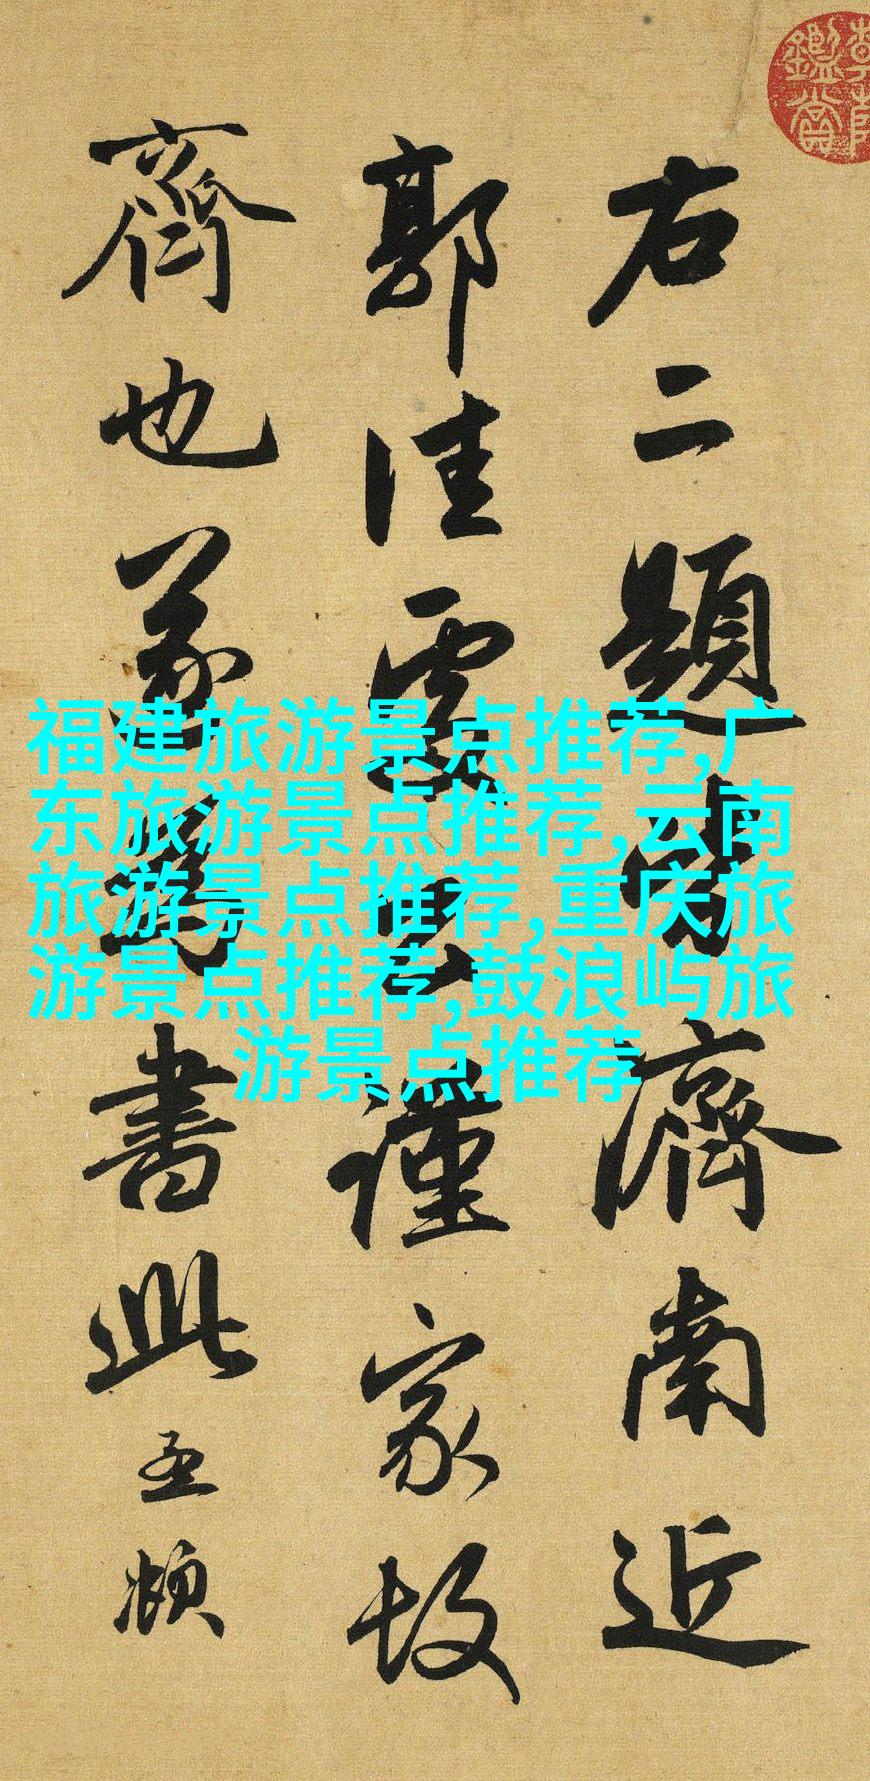 右二題皆濟南近
郭佳處公謹家故
齊也遂爲書此孟頫
福建旅游景点推荐,广
东旅游景点推荐,云南
旅游景点推荐,重庆旅
游景点推荐,鼓浪屿旅
游景点推荐